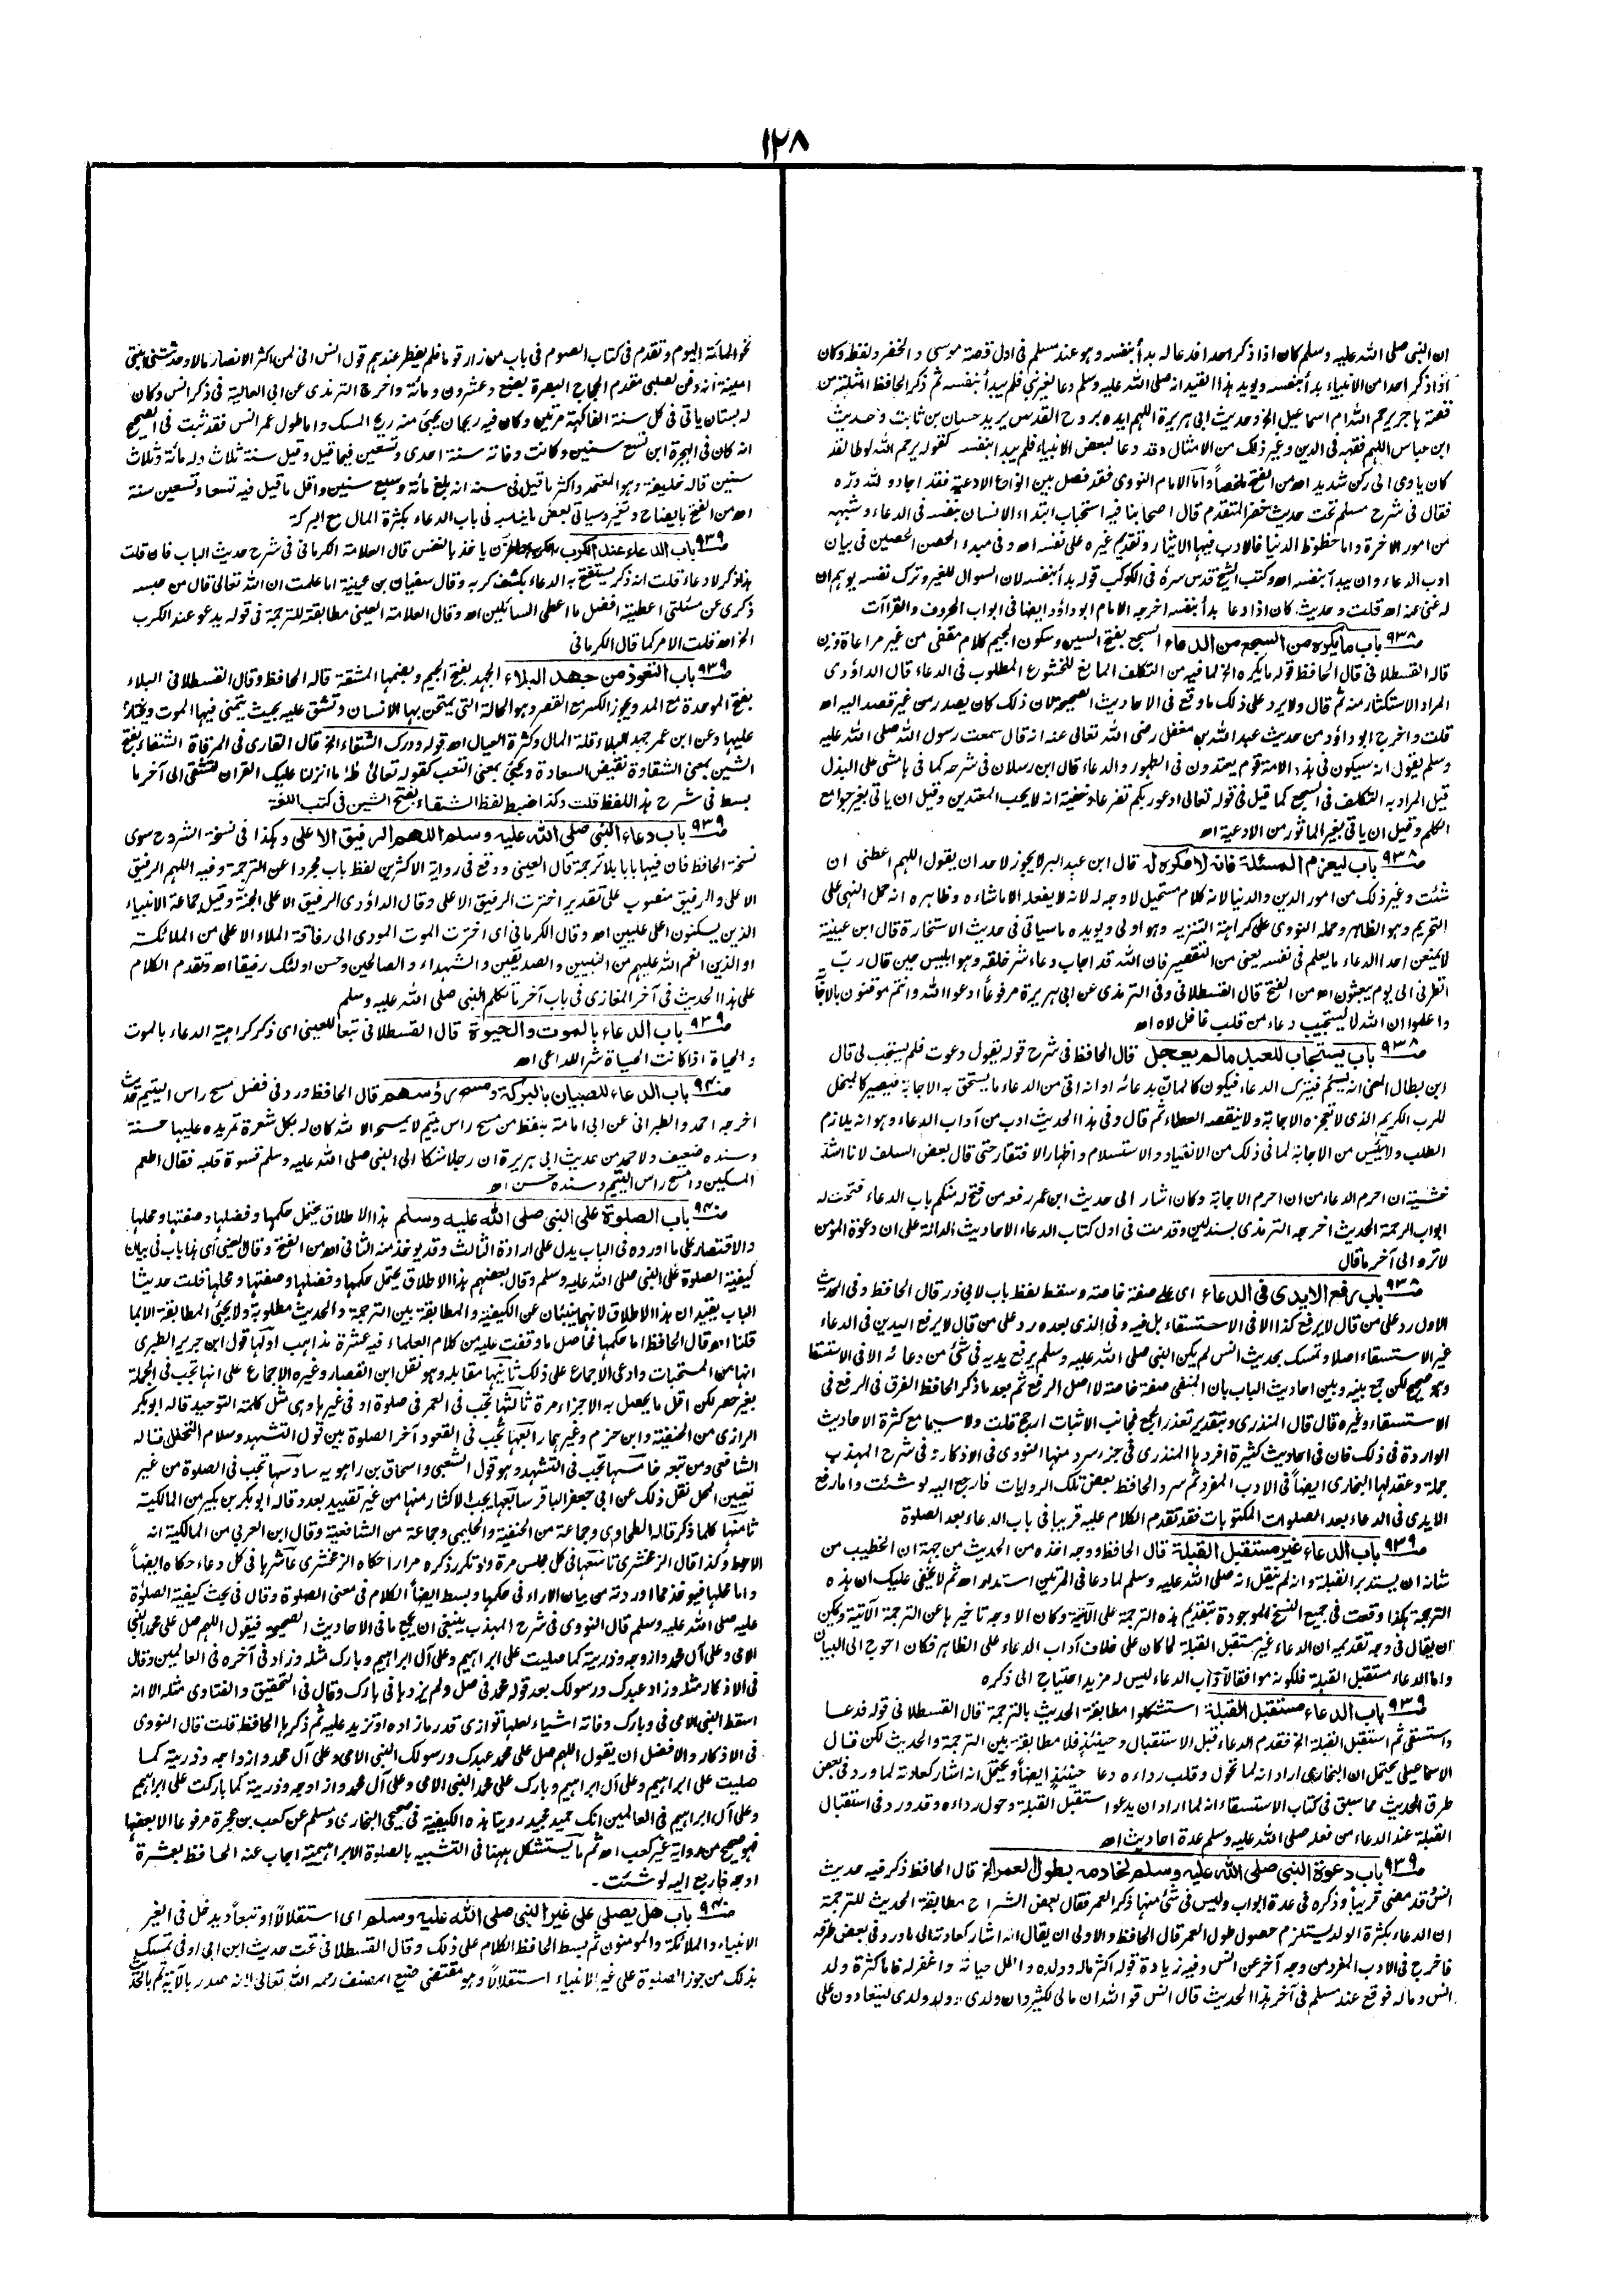 ١٢٨
ان النبى صلى الله عليه وسلم كان اذا ذكر احدا فدعا له بدأ بنفسه وهو عند مسلم فى اول قصة موسى والخضر ولفظه وكان
اذا ذكر احدا من الانبياء بدأ بنفسه ويويد هذا القيد انه صلى الله عليه وسلم دعا لغير نبى فلم يبدأ بنفسه ثم ذكر الحافظ امثلته من
قصة هاجر يرحم الله ام اسماعيل الخ وحديث ابى هريرة اللهم ايده بروح القدس يريد حسان بن ثابت وحديث
ابن عباس اللهم فقهه فى الدين وغير ذلك من الامثال وقد دعا لبعض الانبياء فلم يبدأ بنفسه كقوله يرحم الله لوطا لقد
كان ياوى الى ركن شديد اه من الفتح ملخصاً واما الامام النووى فقد فصل بين انواع الادعية فقد اجاد ولله دره
فقال فى شرح مسلم تحت حديث خضر المتقدم قال اصحابنا فيه استحباب ابتداء الانسان بنفسه فى الدعاء وشبهه
من امور الاخرة واما حظوظ الدنيا فالادب فيها الايثار وتقديم غيره على نفسه اه وفى مبدء الحصن الحصين فى بيان
ادب الدعاء وان يبدأ بنفسه اه وكتب الشيخ قدس سره فى الكوكب قوله بدأ بنفسه لان السوال للغير وترك نفسه يوهم ان
له غنى عنه اه قلت وحديث كان اذا دعا بدأ بنفسه اخرجه الامام ابو داؤد ايضا فى ابواب الحروف والقراآت
ص٩٣٨ باب ما يكره من السجع من الدعاء السجع بفتح السين وسكون الجيم كلام مقفى من غير مراعاة وزن
قاله القسطلانى قال الحافظ قوله ما يكره الخ لما فيه من التكلف المانع للخشوع المطلوب فى الدعاء قال الداؤدى
المراد الاستكثار منه ثم قال ولا يرد على ذلك ما وقع فى الاحاديث الصحيحة لان ذلك كان يصدر من غير قصد اليه اه
قلت واخرج ابو داؤد من حديث عبد الله بن مغفل رضى الله تعالى عنه انه قال سمعت رسول الله صلى الله عليه
وسلم يقول انه سيكون فى هذه الامة قوم يعتدون فى الطهور والدعاء قال ابن رسلان فى شرحه كما فى هامشى على البذل
قيل المراد به التكلف فى السجع كما قيل فى قوله تعالى ادعو ربكم تضرعا وخفية انه لا يحب المعتدين وقيل ان ياتى بغير جوامع
الكلم وقيل ان ياتى بغير الماثور من الادعية اه
ص٩٣٨ باب ليعزم المسئلة فانه لا مكره له قال ابن عبد البر لا يجوز لاحد ان يقول اللهم اعطنى ان
شئت وغير ذلك من امور الدين والدنيا لانه كلام مستحيل لا وجه له لانه لا يفعله الا ما شاءه وظاهره انه حمل النهى على
التحريم وهو الظاهر وحمله النووى على كراهة التنزيه وهو اولى ويويده ما سياتى فى حديث الاستخارة قال ابن عيينة
لا يمنعن احدا الدعاء ما يعلم فى نفسه يعنى من التقصير فان الله قد اجاب دعاء شر خلقه وهو ابليس حين قال رب
انظرنى الى يوم يبعثون اه من الفتح قال القسطلانى وفى الترمذى عن ابى هريرة مرفوعاً ادعوا الله وانتم موقنون بالاجابة
واعلموا ان الله لا يستجيب دعاء من قلب غافل لاه اه
ص٩٣٨ باب يستجاب للعبد ما لم يعجل قال الحافظ فى شرح قوله يقول دعوت فلم يستجب لى قال
ابن بطال المعنى انه يسئم فيترك الدعاء فيكون كالمانّ بدعائه او انه اتى من الدعاء ما يستحق به الاجابة فيصير كالمبخل
للرب الكريم الذى لا تعجزه الاجابة ولا ينقصه العطاء ثم قال وفى هذا الحديث ادب من آداب الدعاء وهو انه يلازم
الطلب ولا ييئس من الاجابة لما فى ذلك من الانقياد والاستسلام واظهار الافتقار حتى قال بعض السلف لانا اشد
خشية ان احرم الدعاء من ان احرم الاجابة وكان اشار الى حديث ابن عمر رفعه من فتح له منكم باب الدعاء فتحت له
ابواب الرحمة الحديث اخرجه الترمذى بسند لين وقدمت فى اول كتاب الدعاء الاحاديث الدالة على ان دعوة المؤمن
لا ترد الى آخر ما قال
ص٩٣٨ باب رفع الايدى فى الدعاء اى على صفة خاصة وسقط لفظ باب لابى ذر قال الحافظ وفى الحديث
الاول رد على من قال لا يرفع كذا الا فى الاستسقاء بل فيه وفى الذى بعده رد على من قال لا يرفع اليدين فى الدعاء
غير الاستسقاء اصلا وتمسك بحديث انس لم يكن النبى صلى الله عليه وسلم يرفع يديه فى شئ من دعائه الا فى الاستسقاء
وهو صحيح لكن جمع بينه وبين احاديث الباب بان المنفى صفة خاصة لا اصل الرفع ثم بعد ما ذكر الحافظ الفرق فى الرفع فى
الاستسقاء وغيره قال قال المنذرى وبتقدير تعذر الجمع فجانب الاثبات ارجح قلت ولا سيما مع كثرة الاحاديث
الواردة فى ذلك فان فى احاديث كثيرة افردها المنذرى فى جزء سرد منها النووى فى الاذكار وفى شرح المهذب
جملة وعقد لها البخارى ايضاً فى الادب المفرد ثم سرد الحافظ بعض تلك الروايات فارجع اليه لو شئت واما رفع
الايدى فى الدعاء بعد الصلوات المكتوبات فقد تقدم الكلام عليه قريبا فى باب الدعاء بعد الصلوة
ص٩٣٩ باب الدعاء غير مستقبل القبلة قال الحافظ ووجه اخذه من الحديث من جهة ان الخطيب من
شانه ان يستدبر القبلة وانه لم ينقل انه صلى الله عليه وسلم لما دعا فى المرتين استدار اه ثم لا يخفى عليك ان هذه
الترجمة هكذا وقعت فى جميع النسخ الموجودة بتقديم هذه الترجمة على الآتية وكان الاوجه تاخيرها عن الترجمة الآتية ويمكن
ان يقال فى وجه تقديمه ان الدعاء غير مستقبل القبلة لما كان على خلاف آداب الدعاء على الظاهر فكان احوج الى البيان
واما الدعاء مستقبل القبلة فلكونه موافقا لآداب الدعاء ليس له مزيد احتياج الى ذكره
ص٩٣٩ باب الدعاء مستقبل القبلة استشكلوا مطابقة الحديث بالترجمة قال القسطلانى قوله فدعا
واستسقى ثم استقبل القبلة الخ فقدم الدعاء قبل الاستقبال وحينئذ فلا مطابقة بين الترجمة والحديث لكن قال
الاسماعيلى يحتمل ان البخارى اراد انه لما تحول وقلب رداءه دعا حينئذ ايضاً ويحتمل انه اشار كعادته لما ورد فى بعض
طرق الحديث مما سبق فى كتاب الاستسقاء انه لما اراد ان يدعو استقبل القبلة وحول رداءه وقد ورد فى استقبال
القبلة عند الدعاء من فعله صلى الله عليه وسلم عدة احاديث اه
ص٩٣٩ باب دعوة النبى صلى الله عليه وسلم لخادمه بطول العمر الخ قال الحافظ ذكر فيه حديث
انس وقد مضى قريباً وذكره فى عدة ابواب وليس فى شئ منها ذكر العمر فقال بعض الشراح مطابقة الحديث للترجمة
ان الدعاء بكثرة الولد يستلزم حصول طول العمر قال الحافظ والاولى ان يقال انه اشار كعادته الى ما ورد فى بعض طرقه
فاخرج فى الادب المفرد من وجه آخر عن انس وفيه زيادة قوله اكثر ماله وولده واطل حياته واغفر له فاما كثرة ولد
انس وماله فوقع عند مسلم فى آخر هذا الحديث قال انس فوالله ان مالى لكثير وان ولدى وولد ولدى ليتعادون على
نحو المائة اليوم وتقدم فى كتاب الصوم فى باب من زار قوما فلم يفطر عندهم قول انس انى لمن اكثر الانصار مالا وحدثتنى ابنتى
امينة انه دفن لصلبى مقدم الحجاج البصرة بضع وعشرون ومائة واخرج الترمذى عن ابى العالية فى ذكر انس وكان
له بستان ياتى فى كل سنة الفاكهة مرتين وكان فيه ريحان يجئ منه ريح المسك واما طول عمر انس فقد ثبت فى الصحيح
انه كان فى الهجرة ابن تسع سنين وكانت وفاته سنة احدى وتسعين فيما قيل وقيل سنة ثلاث وله مائة وثلاث
سنين قاله خليفة وهو المعتمد واكثر ما قيل فى سنه انه بلغ مائة وسبع سنين واقل ما قيل فيه تسعا وتسعين سنة
اه من الفتح بايضاح وتغير وسياتى بعض ما يناسبه فى باب الدعاء بكثرة المال مع البركة
ص٩٣٩ باب الدعاء عند الكرب هو حزن ياخذ بالنفس قال العلامة الكرمانى فى شرح حديث الباب فان قلت
هذا ذكر لا دعاء قلت انه ذكر يستفتح به الدعاء بكشف كربه وقال سفيان بن عيينة اما علمت ان الله تعالى قال من حبسه
ذكرى عن مسئلتى اعطيته افضل ما اعطى السائلين اه وقال العلامة العينى مطابقته للترجمة فى قوله يدعو عند الكرب
الخ اه قلت الامر كما قال الكرمانى
ص٩٣٩ باب التعوذ من جهد البلاء الجهد بفتح الجيم وبضمها المشقة قاله الحافظ وقال القسطلانى البلاء
بفتح الموحدة مع المد ويجوز الكسر مع القصر وهو الحالة التى يمتحن بها الانسان وتشق عليه بحيث يتمنى فيها الموت ويختاره
عليها وعن ابن عمر جهد البلاء قلة المال وكثرة العيال اه قوله ودرك الشقاء الخ قال القارى فى المرقاة الشقاء بفتح
الشين بمعنى الشقاوة نقيض السعادة ويجئ بمعنى التعب كقوله تعالى طه ما انزلنا عليك القران لتشقى الى آخر ما
بسط فى شرح هذا اللفظ قلت وكذا ضبط لفظ الشقاء بفتح الشين فى كتب اللغة
ص٩٣٩ باب دعاء النبى صلى الله عليه وسلم اللهم الرفيق الاعلى وهكذا فى نسخة الشروح سوى
نسخة الحافظ فان فيها بابا بلا ترجمة قال العينى ووقع فى رواية الاكثرين لفظ باب مجردا عن الترجمة وفيه اللهم الرفيق
الاعلى والرفيق منصوب على تقدير اخترت الرفيق الاعلى وقال الداؤدى الرفيق الاعلى الجنة وقيل جماعة الانبياء
الذين يسكنون اعلى عليين اه وقال الكرمانى اى اخترت الموت المودى الى رفاقة الملاء الاعلى من الملائكة
او الذين انعم الله عليهم من النبيين والصديقين والشهداء والصالحين وحسن اولئك رفيقا اه وتقدم الكلام
على هذا الحديث فى آخر المغازى فى باب آخر ما تكلم النبى صلى الله عليه وسلم
ص٩٣٩ باب الدعاء بالموت والحيوة قال القسطلانى تبعا للعينى اى ذكر كراهية الدعاء بالموت
والحياة اذا كانت الحياة شر للداعى اه
ص٩٤٠ باب الدعاء للصبيان بالبركة ومسح رؤسهم قال الحافظ ورد فى فضل مسح راس اليتيم حديث
اخرجه احمد والطبرانى عن ابى امامة بلفظ من مسح راس يتيم لا يمسحه الا لله كان له بكل شعرة تمر يده عليها حسنة
وسنده ضعيف ولاحمد من حديث ابى هريرة ان رجلا شكا الى النبى صلى الله عليه وسلم قسوة قلبه فقال اطعم
المسكين وامسح راس اليتيم وسنده حسن اه
ص٩٤٠ باب الصلوة على النبى صلى الله عليه وسلم هذا الاطلاق يحتمل حكمها وفضلها وصفتها ومحلها
والاقتصار على ما اورده فى الباب يدل على ارادة الثالث وقد يوخذ منه الثانى اه من الفتح وقال العينى اى هذا باب فى بيان
كيفية الصلوة على النبى صلى الله عليه وسلم وقال بعضهم هذا الاطلاق يحتمل حكمها وفضلها وصفتها ومحلها قلت حديثا
الباب يقيد ان هذا الاطلاق لانهما ينبئان عن الكيفية والمطابقة بين الترجمة والحديث مطلوبة ولا يجئ المطابقة الا بما
قلنا اه قال الحافظ اما حكمها فحاصل ما وقفت عليه من كلام العلماء فيه عشرة مذاهب اولها قول ابن جرير الطبرى
انها من المستحبات وادعى الاجماع على ذلك ثانيها مقابله وهو نقل ابن القصار وغيره الاجماع على انها تجب فى الجملة
بغير حصر لكن اقل ما يحصل به الاجزاء مرة ثالثها تجب فى العمر فى صلوة او فى غيرها وهى مثل كلمة التوحيد قاله ابو بكر
الرازى من الحنفية وابن حزم وغيرهما رابعها تجب فى القعود آخر الصلوة بين قول التشهد وسلام التحلل قاله
الشافعى ومن تبعه خامسها تجب فى التشهد وهو قول الشعبى واسحاق بن راهويه سادسها تجب فى الصلوة من غير
تعيين المحل نقل ذلك عن ابى جعفر الباقر سابعها يجب الاكثار منها من غير تقييد بعدد قاله ابو بكر بن بكير من المالكية
ثامنها كلما ذكر قاله الطحاوى وجماعة من الحنفية والحليمى وجماعة من الشافعية وقال ابن العربى من المالكية انه
الاحوط وكذا قال الزمخشرى تاسعها فى كل مجلس مرة ولو تكرر ذكره مرارا حكاه الزمخشرى عاشرها فى كل دعاء حكاه ايضاً
واما محلها فيوخذ مما اوردته من بيان الاراء فى حكمها وبسط ايضاً الكلام فى معنى الصلوة وقال فى بحث كيفية الصلوة
عليه صلى الله عليه وسلم قال النووى فى شرح المهذب ينبغى ان يجمع ما فى الاحاديث الصحيحة فيقول اللهم صل على محمد النبى
الامى وعلى آل محمد وازواجه وذريته كما صليت على ابراهيم وعلى آل ابراهيم وبارك مثله وزاد فى آخره فى العالمين وقال
فى الاذكار مثله وزاد عبدك ورسولك بعد قوله محمد فى صل ولم يزدها فى بارك وقال فى التحقيق والفتاوى مثله الا انه
اسقط النبى الامى فى وبارك وفاته اشياء لعلها توازى قدر ما زاده او تزيد عليه ثم ذكرها الحافظ قلت قال النووى
فى الاذكار والافضل ان يقول اللهم صل على محمد عبدك ورسولك النبى الامى وعلى آل محمد وازواجه وذريته كما
صليت على ابراهيم وعلى آل ابراهيم وبارك على محمد النبى الامى وعلى آل محمد وازواجه وذريته كما باركت على ابراهيم
وعلى آل ابراهيم فى العالمين انك حميد مجيد روينا هذه الكيفية فى صحيحى البخارى ومسلم عن كعب بن عجرة مرفوعا الا بعضها
فهو صحيح من رواية غير كعب اه ثم ما يستشكل ههنا فى التشبيه بالصلوة الابراهيمية اجاب عنه الحافظ بعشرة
اوجه فارجع اليه لو شئت ۔
ص٩٤٠ باب هل يصلى على غير النبى صلى الله عليه وسلم اى استقلالاً او تبعاً ويدخل فى الغير
الانبياء والملائكة والمومنون ثم بسط الحافظ الكلام على ذلك وقال القسطلانى تحت حديث ابن ابى اوفى تمسك
بذلك من جوز الصلوة على غير الانبياء استقلالاً وهو مقتضى صنيع المصنف رحمه الله تعالى لانه صدر بالآية ثم بالحديث